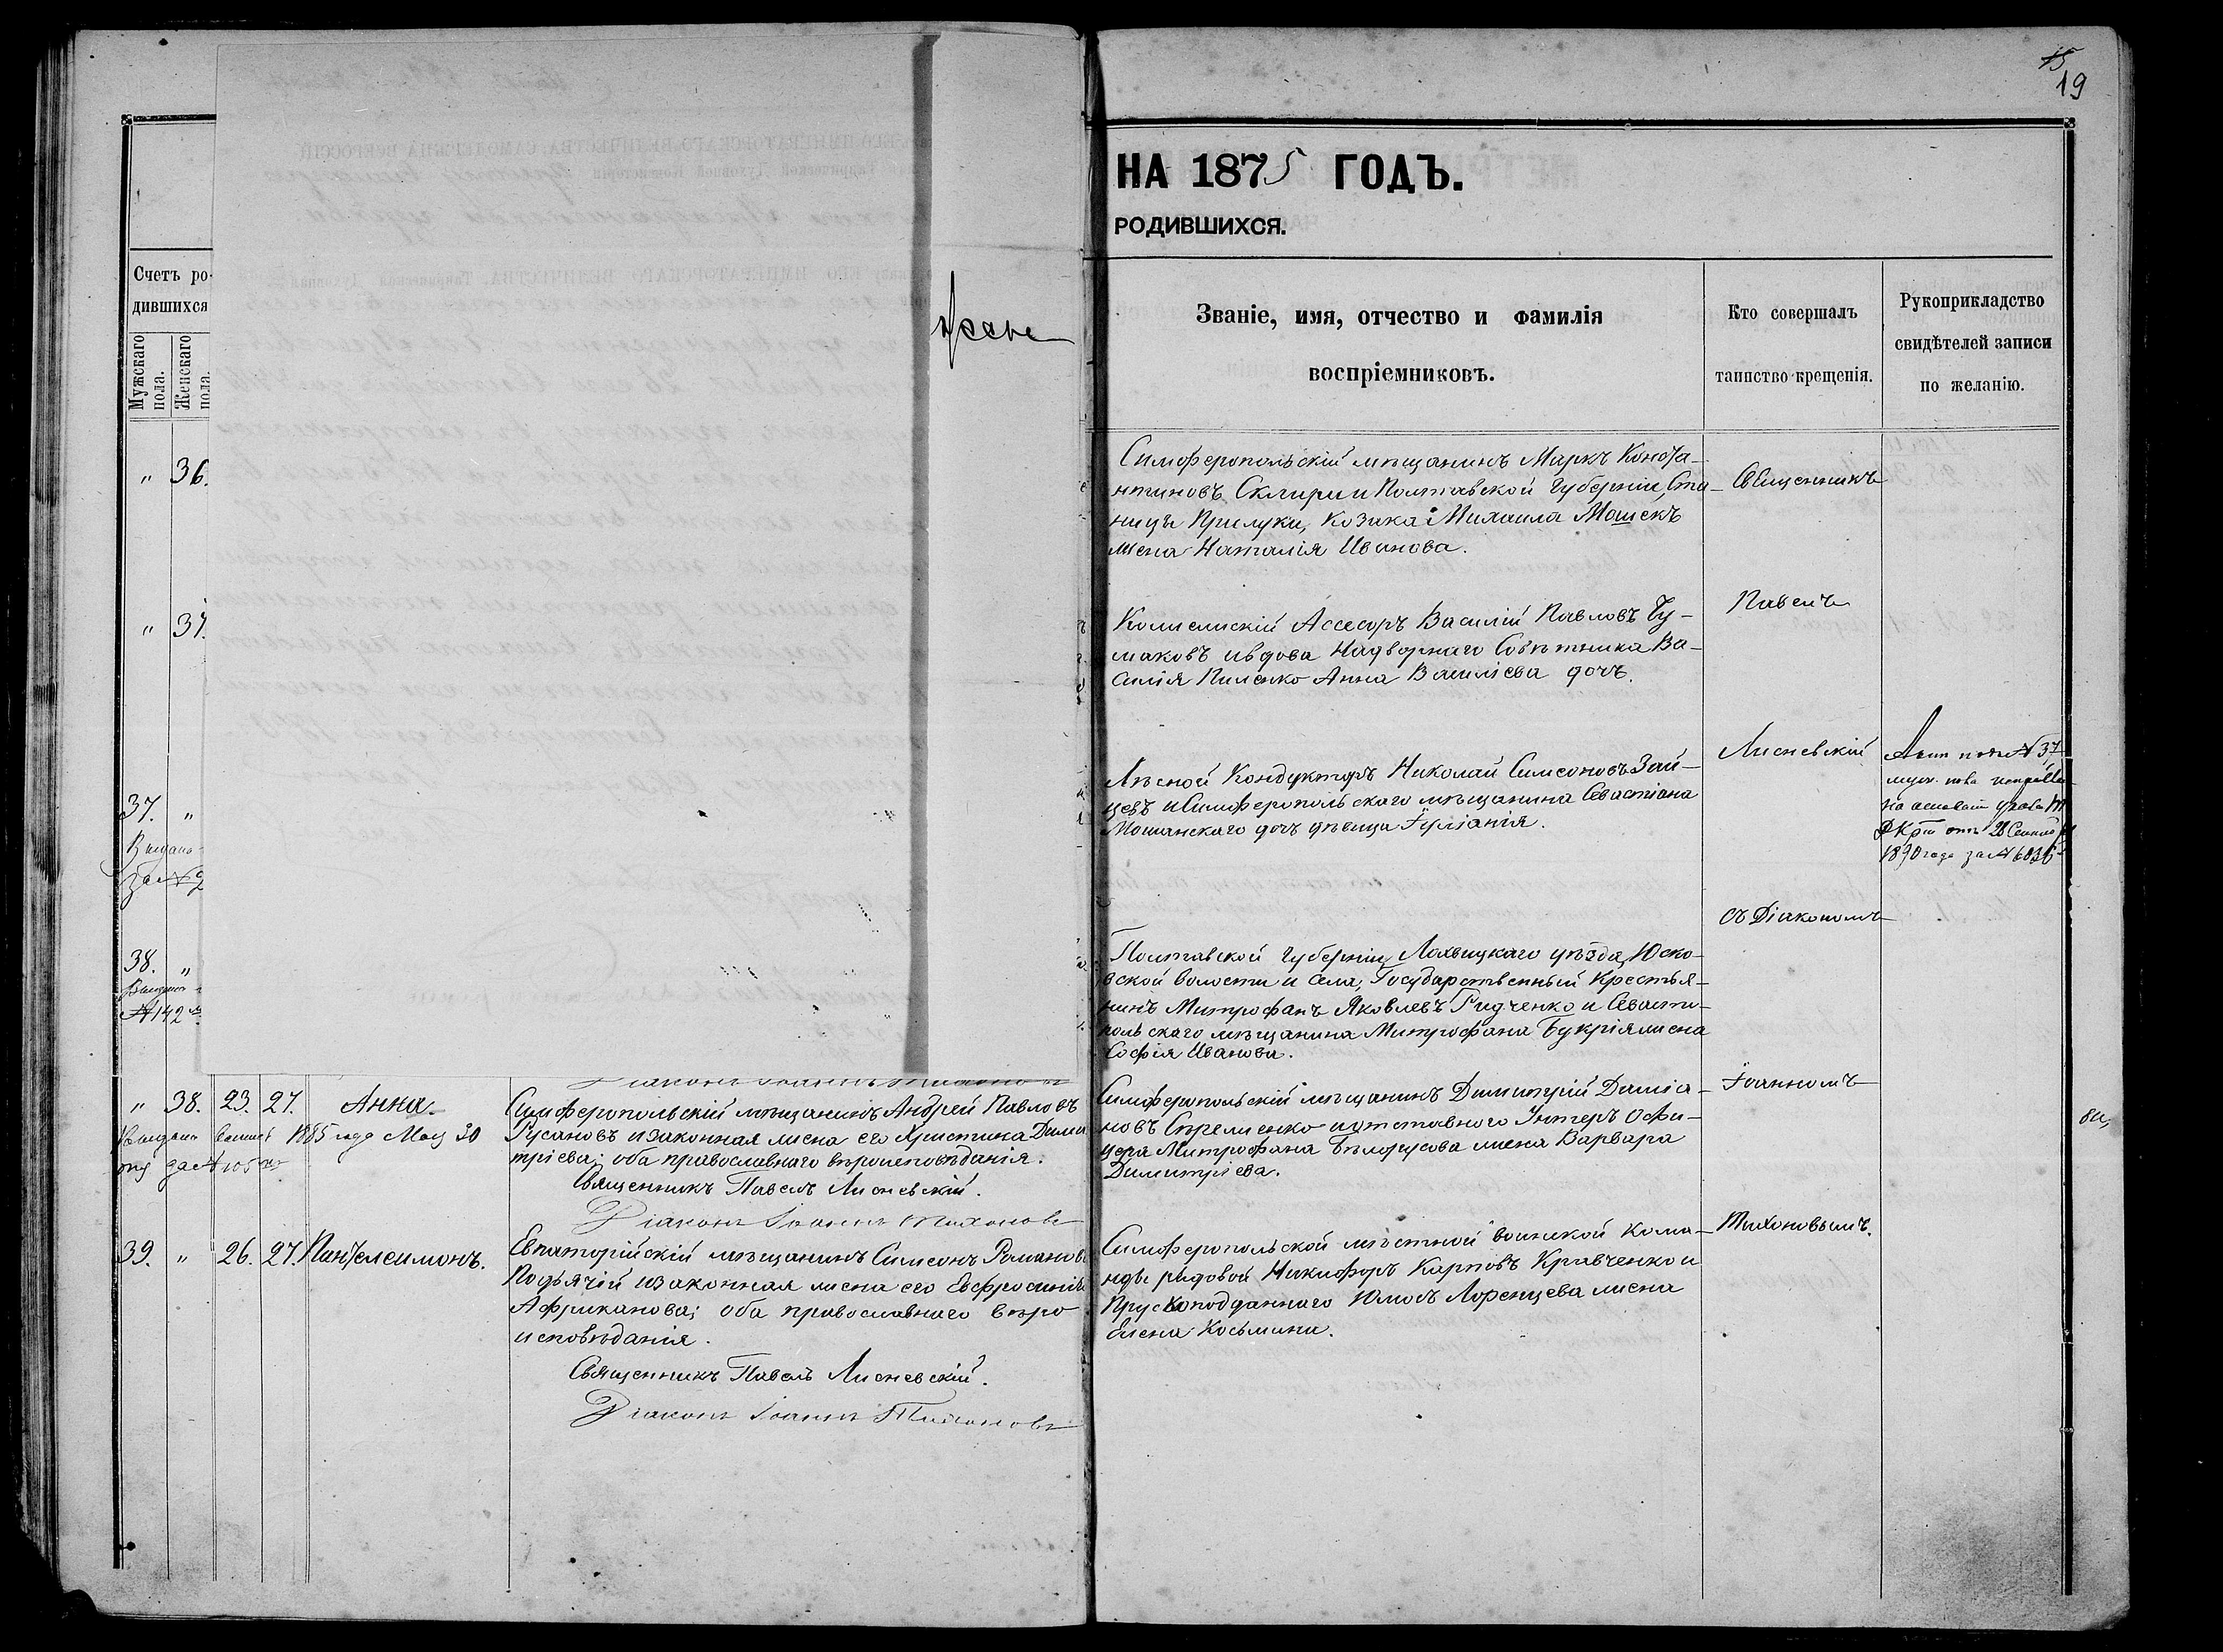 15
19
НА 1875 ГОДЪ.
РОДИВШИХСЯ.
Счетъ ро-
дившихся
Мужскаго пола.
Женскаго пола.
Званіе, имя, отчество и фамилія
воспріемниковъ.
Кто совершалъ
таинство крещенія.
Рукоприкладство
свидѣтелей записи
по желанію.
" 36.
Симферопольскій мѣщанинъ Маркъ Конста-
нтиновъ Склири и Полтавской Губерніи, Ста-
ницы Прилуки, Козака Михаила Мошекъ
жена Наталія Иванова.
Священникъ
" 37.
Коллежскій Ассесоръ Василій Павловъ Чу-
маковъ и вдова Надворнаго Совѣтника Ва-
силія Пиленко Анна Василіева дочь.
Павелъ
37. "
Выдано
за №
Лѣсной Кондукторъ Николай Симеоновъ Зай-
цевъ и Симферопольскаго мѣщанина Севастіана
Мошанскаго дочь дѣвица Іуліанія.
Лисневскій
Актъ подъ № 37,
муж. пола исправле
на основаніи указа Т
Д К ᲂтъ 28 Сентяб
1890 года за № 6036
съ Діакономъ
38. "
Выдано
№ 142
Полтавской Губерніи, Лохвицкаго уѣзда, Юско-
вской волости и села, Государственный Крестья-
нинъ Митрофанъ Яковлевъ Гидченко и Севасто-
польскаго мѣщанина Митрофана Букрія жена
Софія Иванова.
Діаконъ Іоаннъ Тихоновъ
" 38. 23. 27. Анна.
Выдана 1885 года Мая 30
за № 105
Симферопольскій мѣщанинъ Андрей Павловъ
Русановъ и законная жена его Христина Дими
тріева; оба православнаго вѣроисповѣданія.
Священникъ Павелъ Лисневскій.
Діаконъ Іоаннъ Тихоновъ
Симферопольскій мѣщанинъ Димитрій Даміа-
новъ Стреленко и отставного Унтеръ Офи-
цера Митрофана Бѣлоусова жена Варвара
Димитріева.
Іоанномъ
39. " 26. 27. Пантелеимонъ.
Евпаторійскій мѣщанинъ Симеонъ Романовъ
Подъячій и законная жена его Евфросинія
Африканова; оба православнаго вѣро
исповѣданія.
Священникъ Павелъ Лисневскій.
Діаконъ Іоаннъ Тихоновъ
Симферопольской мѣстной воинской Кома-
нды рядовой Никифоръ Карповъ Кравченко и
Прусскоподданнаго Юліосъ Лоренцева жена
Елена Косьмина.
Тихоновымъ.